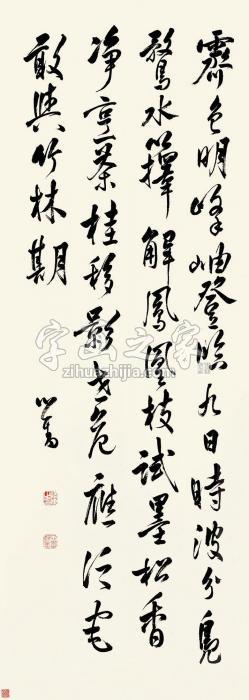 霽色明峰岫登臨九日時波分鳧
鷖水籜解鳳凰枝試墨松香
净亨茶桂移影應
敢與竹林期
心畬
字画之家
zihuazhijia.com